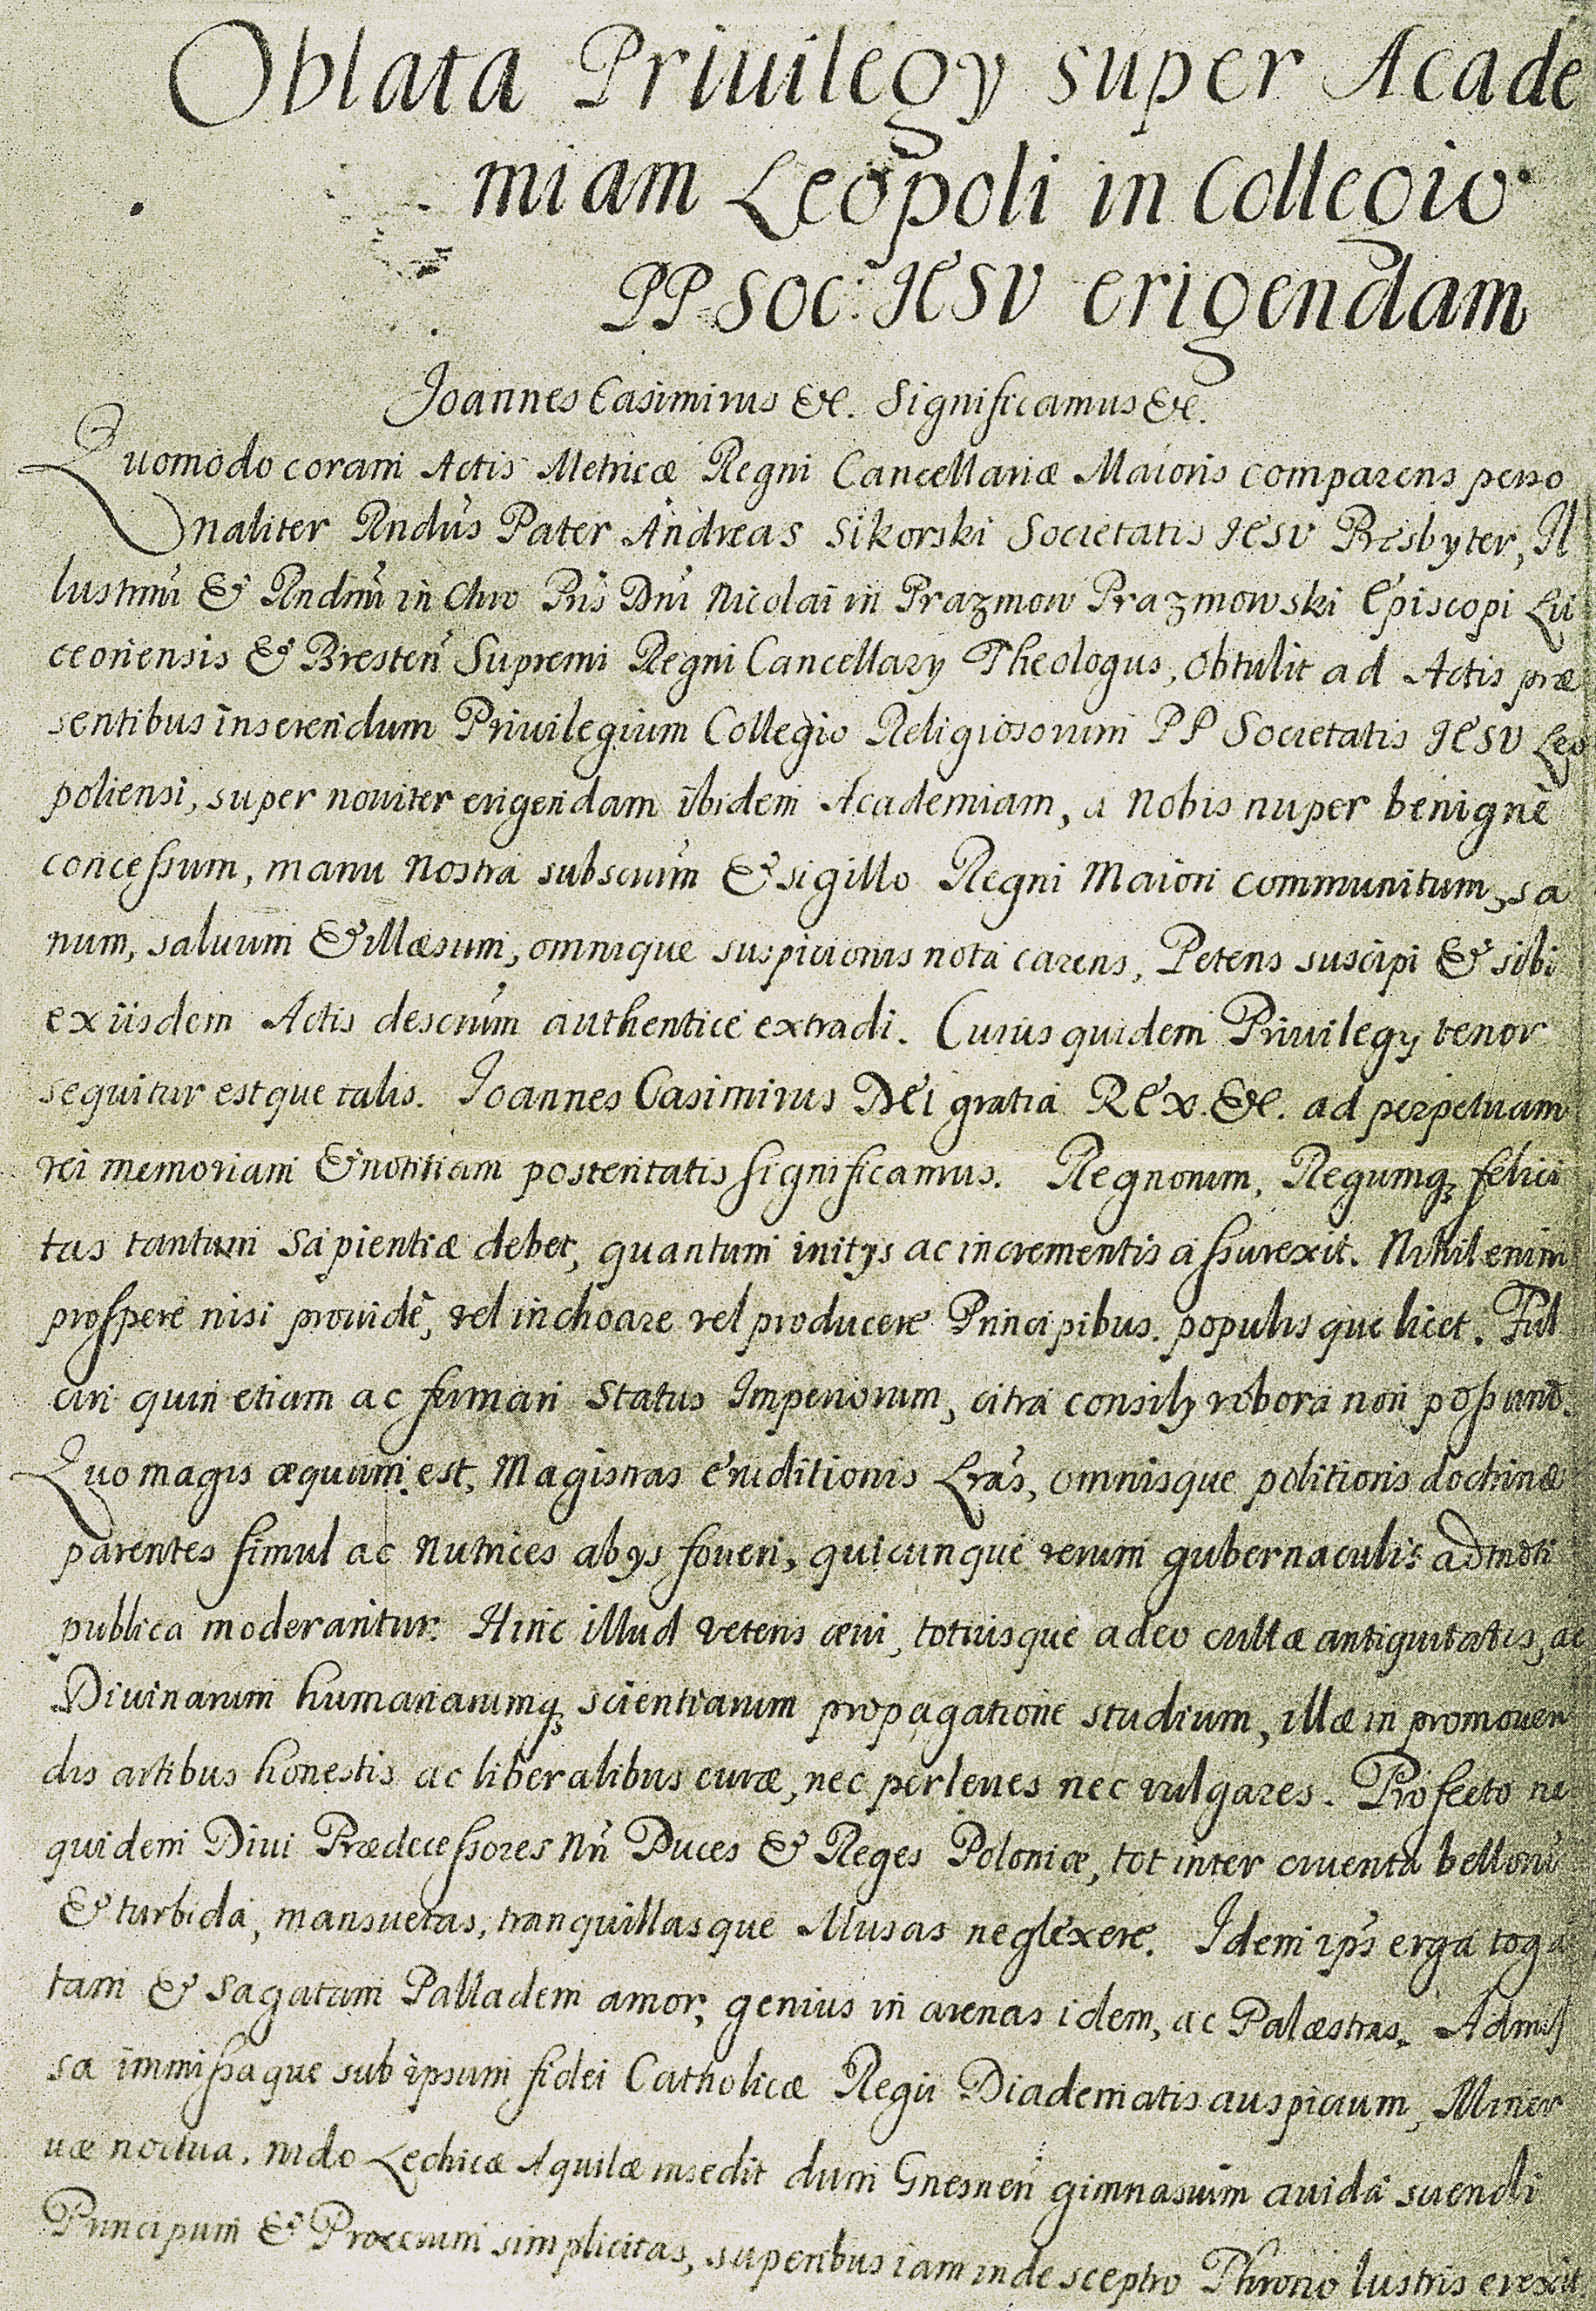 Oblata Priuilegy super Acade
miam Leopoli in Collegio
PP Soc: IESV erigendam
Joannes Casimirus &c. Significamus &c.
Quomodo coram Actis Metricæ Regni Cancellariæ Maioris comparens perso
naliter Rndus Pater Andreas Sikorski Societatis IESV Presbyter, Il
lustrmi & Rndmi in Chro Pris Dni Nicolai in Prazmow Prazmowski Episcopi Lu
ceoriensis & Bresten Supremi Regni Cancellary Theologus, obtulit ad Actis præ
sentibus inserendum Priuilegium Collegio Religiosorum PP Societatis IESV Leo
poliensi, super nouiter erigendam ibidem Academiam, a nobis nuper benignè
concessum, manu nostra subscrium & sigillo Regni Maiori communitum, sa
num, saluum & illæsum, omnique suspicionis nota carens, Petens suscipi & sibi
ex iisdem Actis descrium authentice extradi. Cuius quidem Priuilegy tenor
sequitur estque talis. Joannes Casimirus DEI gratia REX. &c. ad perpetuam
rei memoriam & notitiam posteritatis significamus. Regnorum, Regumq; felici
tas tantum sapientiæ debet, quantum initys ac incrementis assurexit. Nihil enim
prospere nisi prouidè, vel inchoare vel producere Principibus. populisque licet. Ful
ciri quin etiam ac firmari Status Imperiorum, citra consily robora non possunt.
Quo magis æquum est, Magistras eruditionis Lras, omnisque politioris doctrinæ
parentes simul ac nutrices abys foueri, quicunque rerum gubernaculis admoti
publica moderantur. Hinc illud veteris æui, totiusque adeo cultæ antiquitatis, ac
Diuinarum humanarumq; scientiarum propagatione studium, illæ in promouen
dis artibus honestis ac liberalibus curæ, nec perleues nec vulgares. Profecto ne
quidem Diui Prædecessores Nri Duces & Reges Poloniæ, tot inter cruenta bellorum
& turbida, mansuetas, tranquillasque Musas neglexere. Idem ips erga toga
tam & sagatam Palladem amor, genius in arenas idem, ac Palæstras. Admis
sa immissaque sub ipsum fidei Catholicæ Regii Diadematis auspicium, Miner
uæ noctua. nido Lechicæ Aquilæ insedit dum Gnesnen gimnasium auida suendi
Principum & Procerum simplicitas, superibus iam inde sceptro Thronio lustris erexit